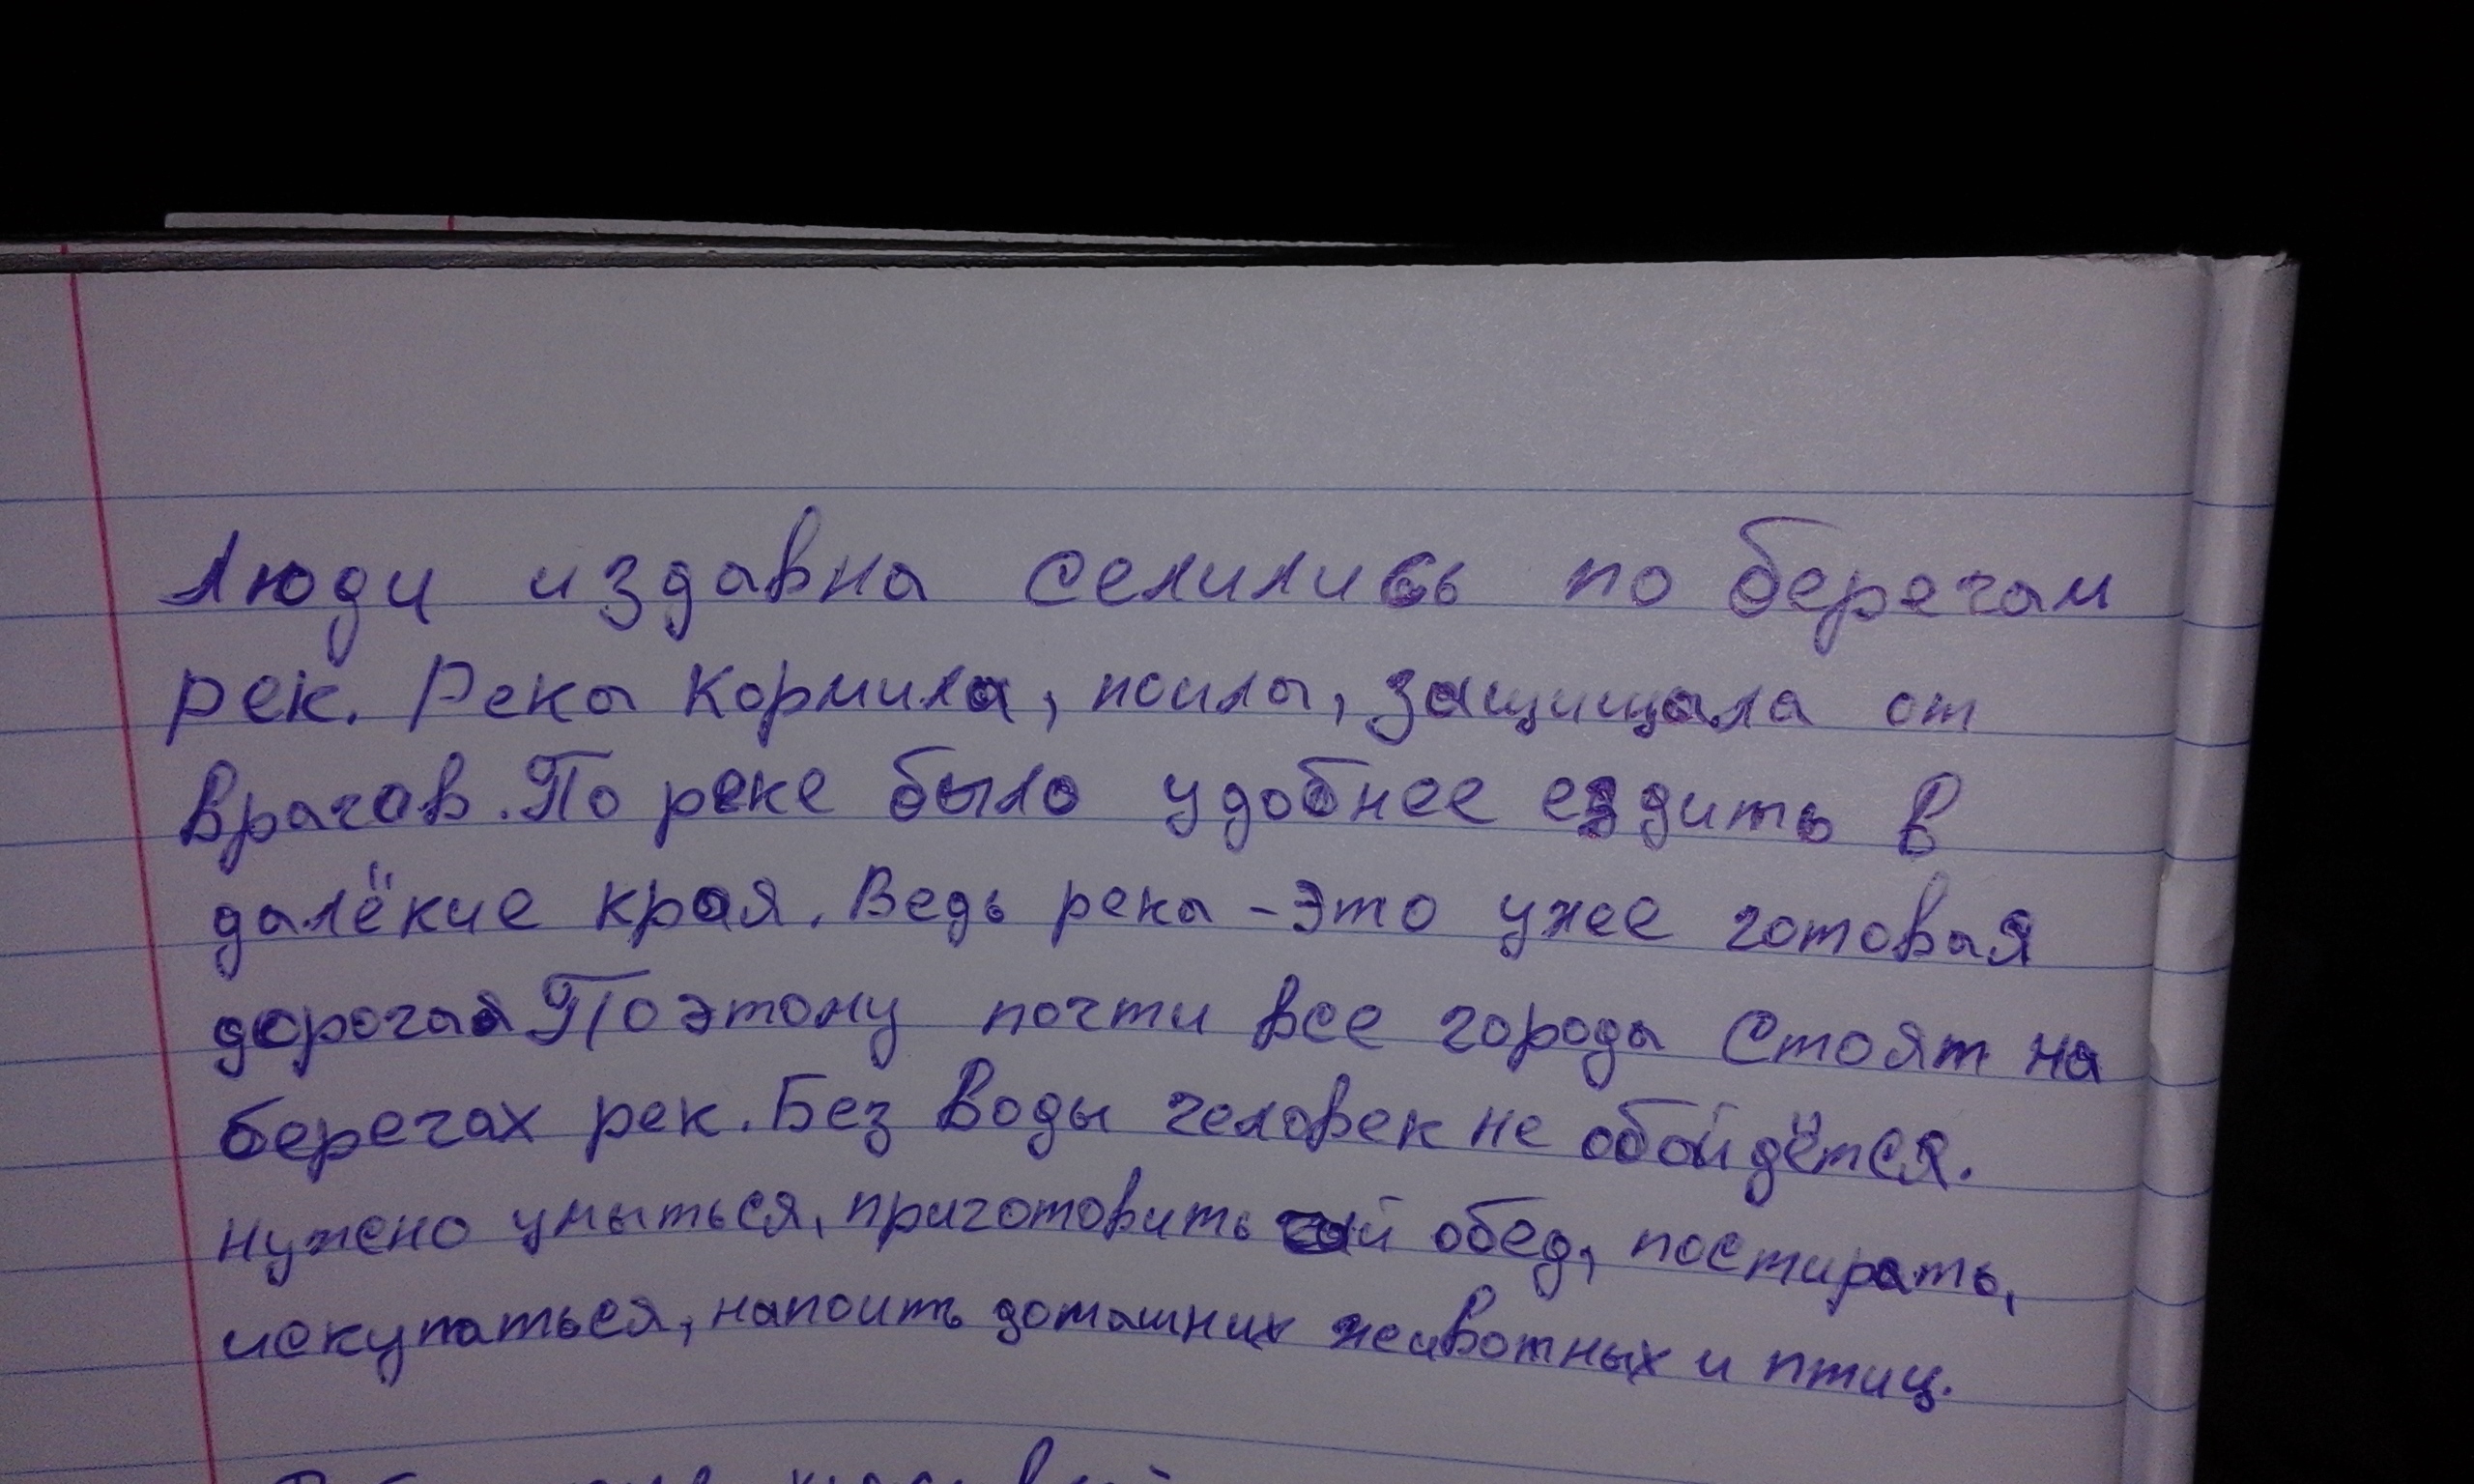 Люди издавна селились по берегам
рек. Река Кормила, поила, защищала от
врагов. По реке было удобнее ездить в
далёкие края. Ведь река - это уже готовая
дорога Поэтому почти все города Стоят на
берегах рек. Без воды человек не обойдётся.
нужно умыться, приготовить обед, постирать,
искупаться, напоить домашних животных и птиц.